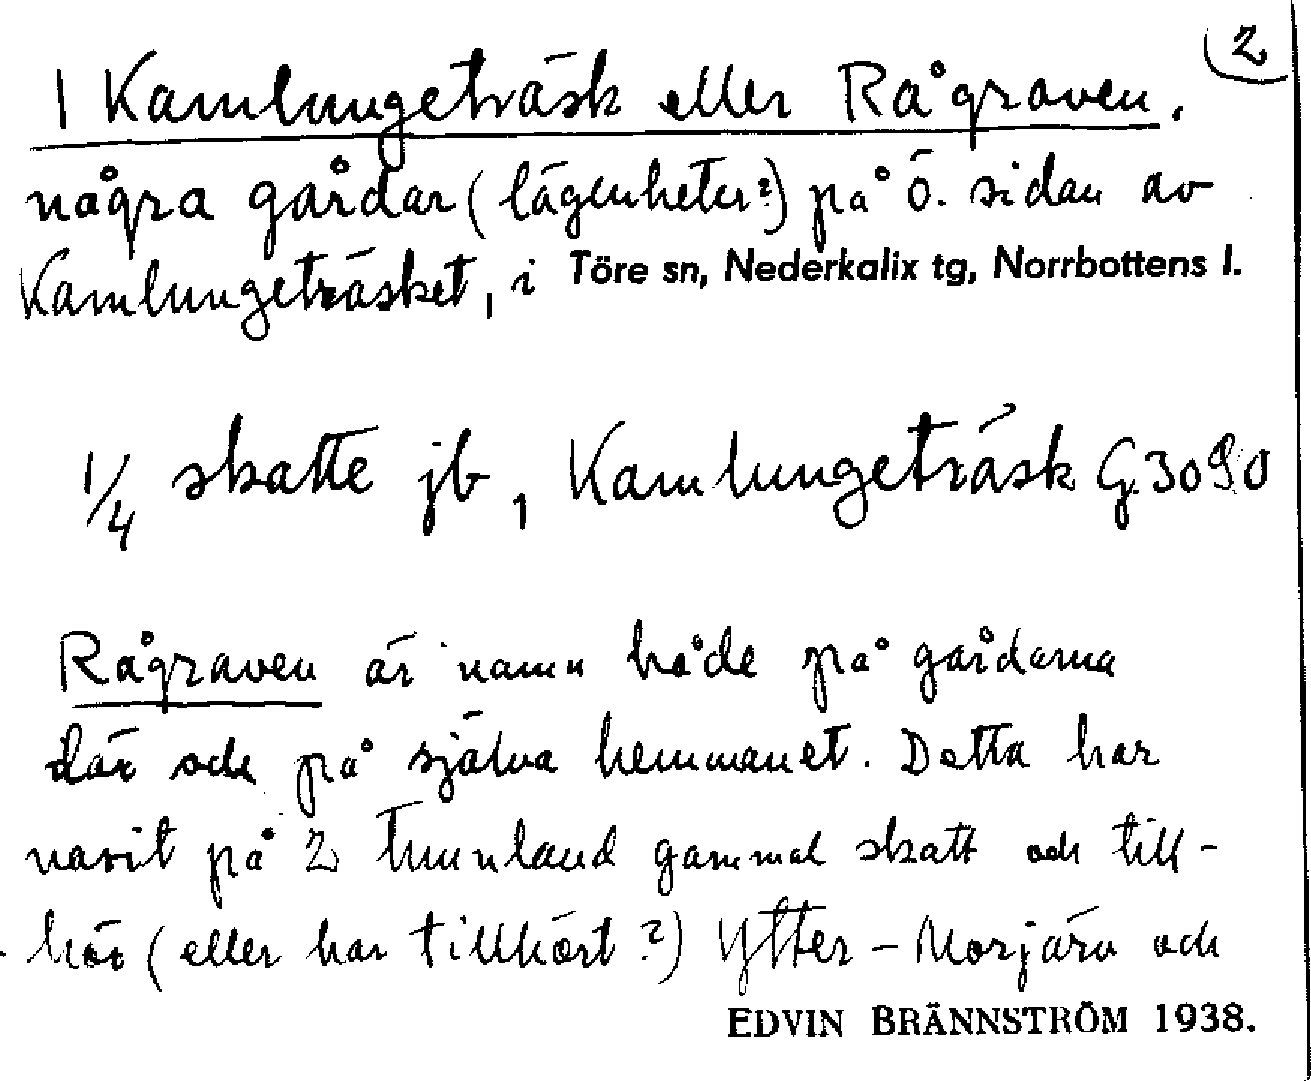 2
1 Kamlungeträsk eller Rågraven.
några gårdar (lägenheter?) på ö. sidan av
Kamlungeträsket, i Töre sn, Nederkalix tg, Norrbottens l.
1/4 skatte jb, Kamlungeträsk G. 3090
Rågraven är namn både på gårdarna
där och på själva hemmanet. Detta har
varit på 2 tunnland gammal skatt och till-
hör (eller har tillhört?) Ytter-Morjärv och
EDVIN BRÄNNSTRÖM 1938.